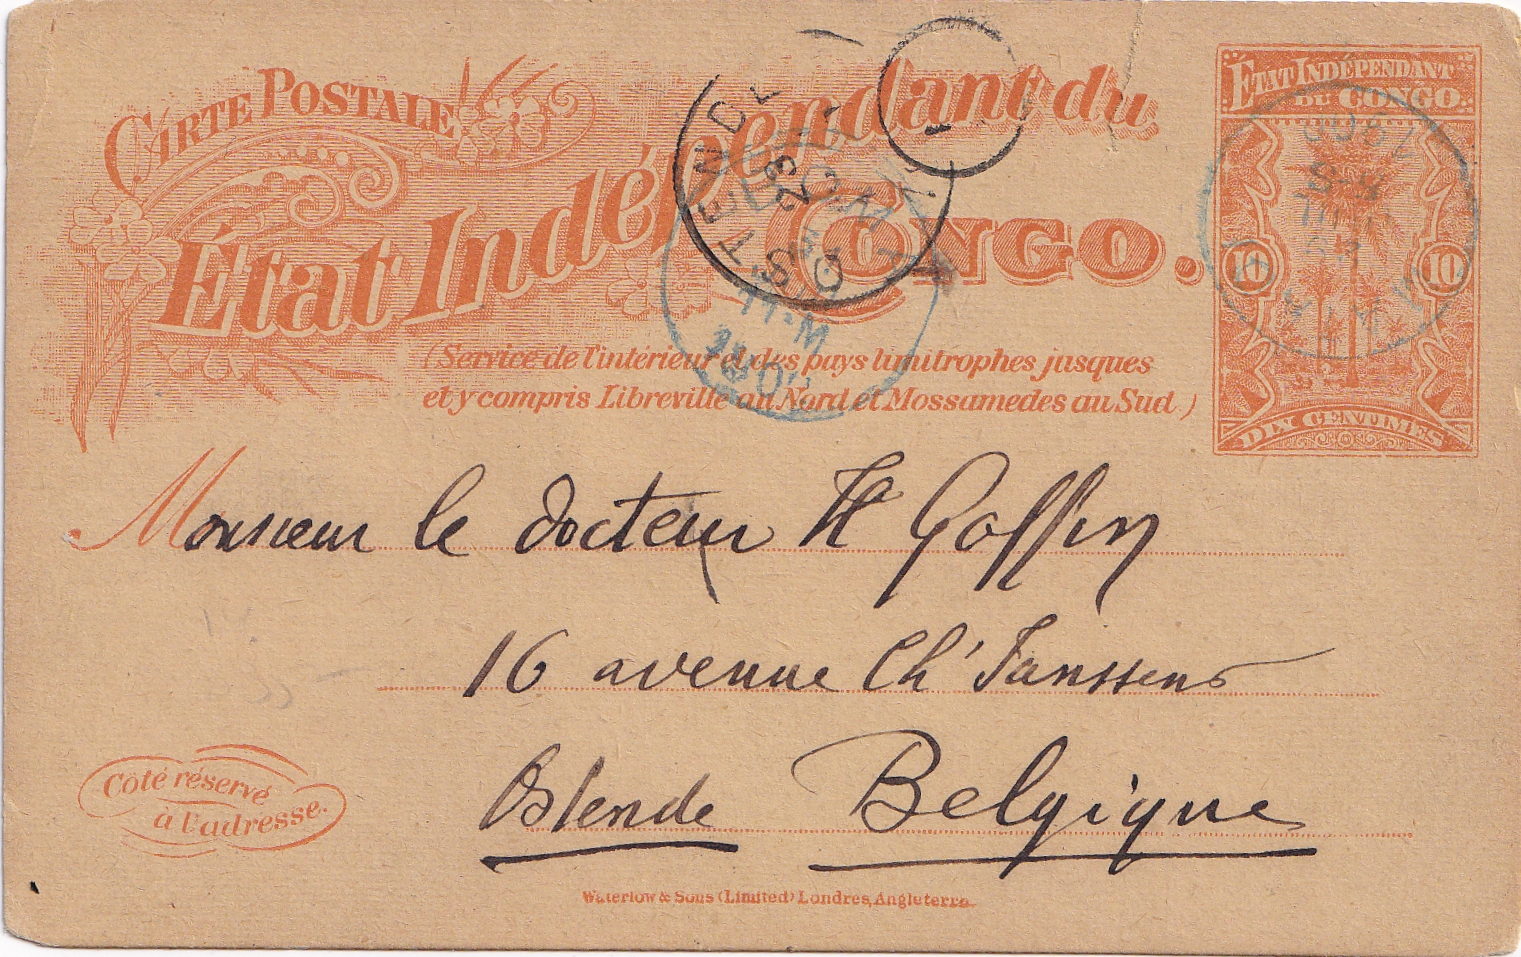 CARTE POSTALE
État Indépendant du
CONGO.
(Service de l'intérieur et des pays limitrophes jusques
et y compris Libreville au Nord et Mossamedes au Sud.)
ÉTAT INDÉPENDANT
DU CONGO.
10 10
DIX CENTIMES
1900
23
11-M
1
Monsieur le docteur Goffin
16 avenue Ch' Janssens
Ostende Belgique
Côté réservé
à l'adresse.
Waterlow & Sons (Limited) Londres, Angleterre.